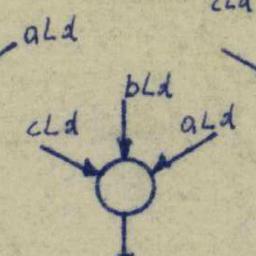 aLd
cLd
bLd
cLd
aLd